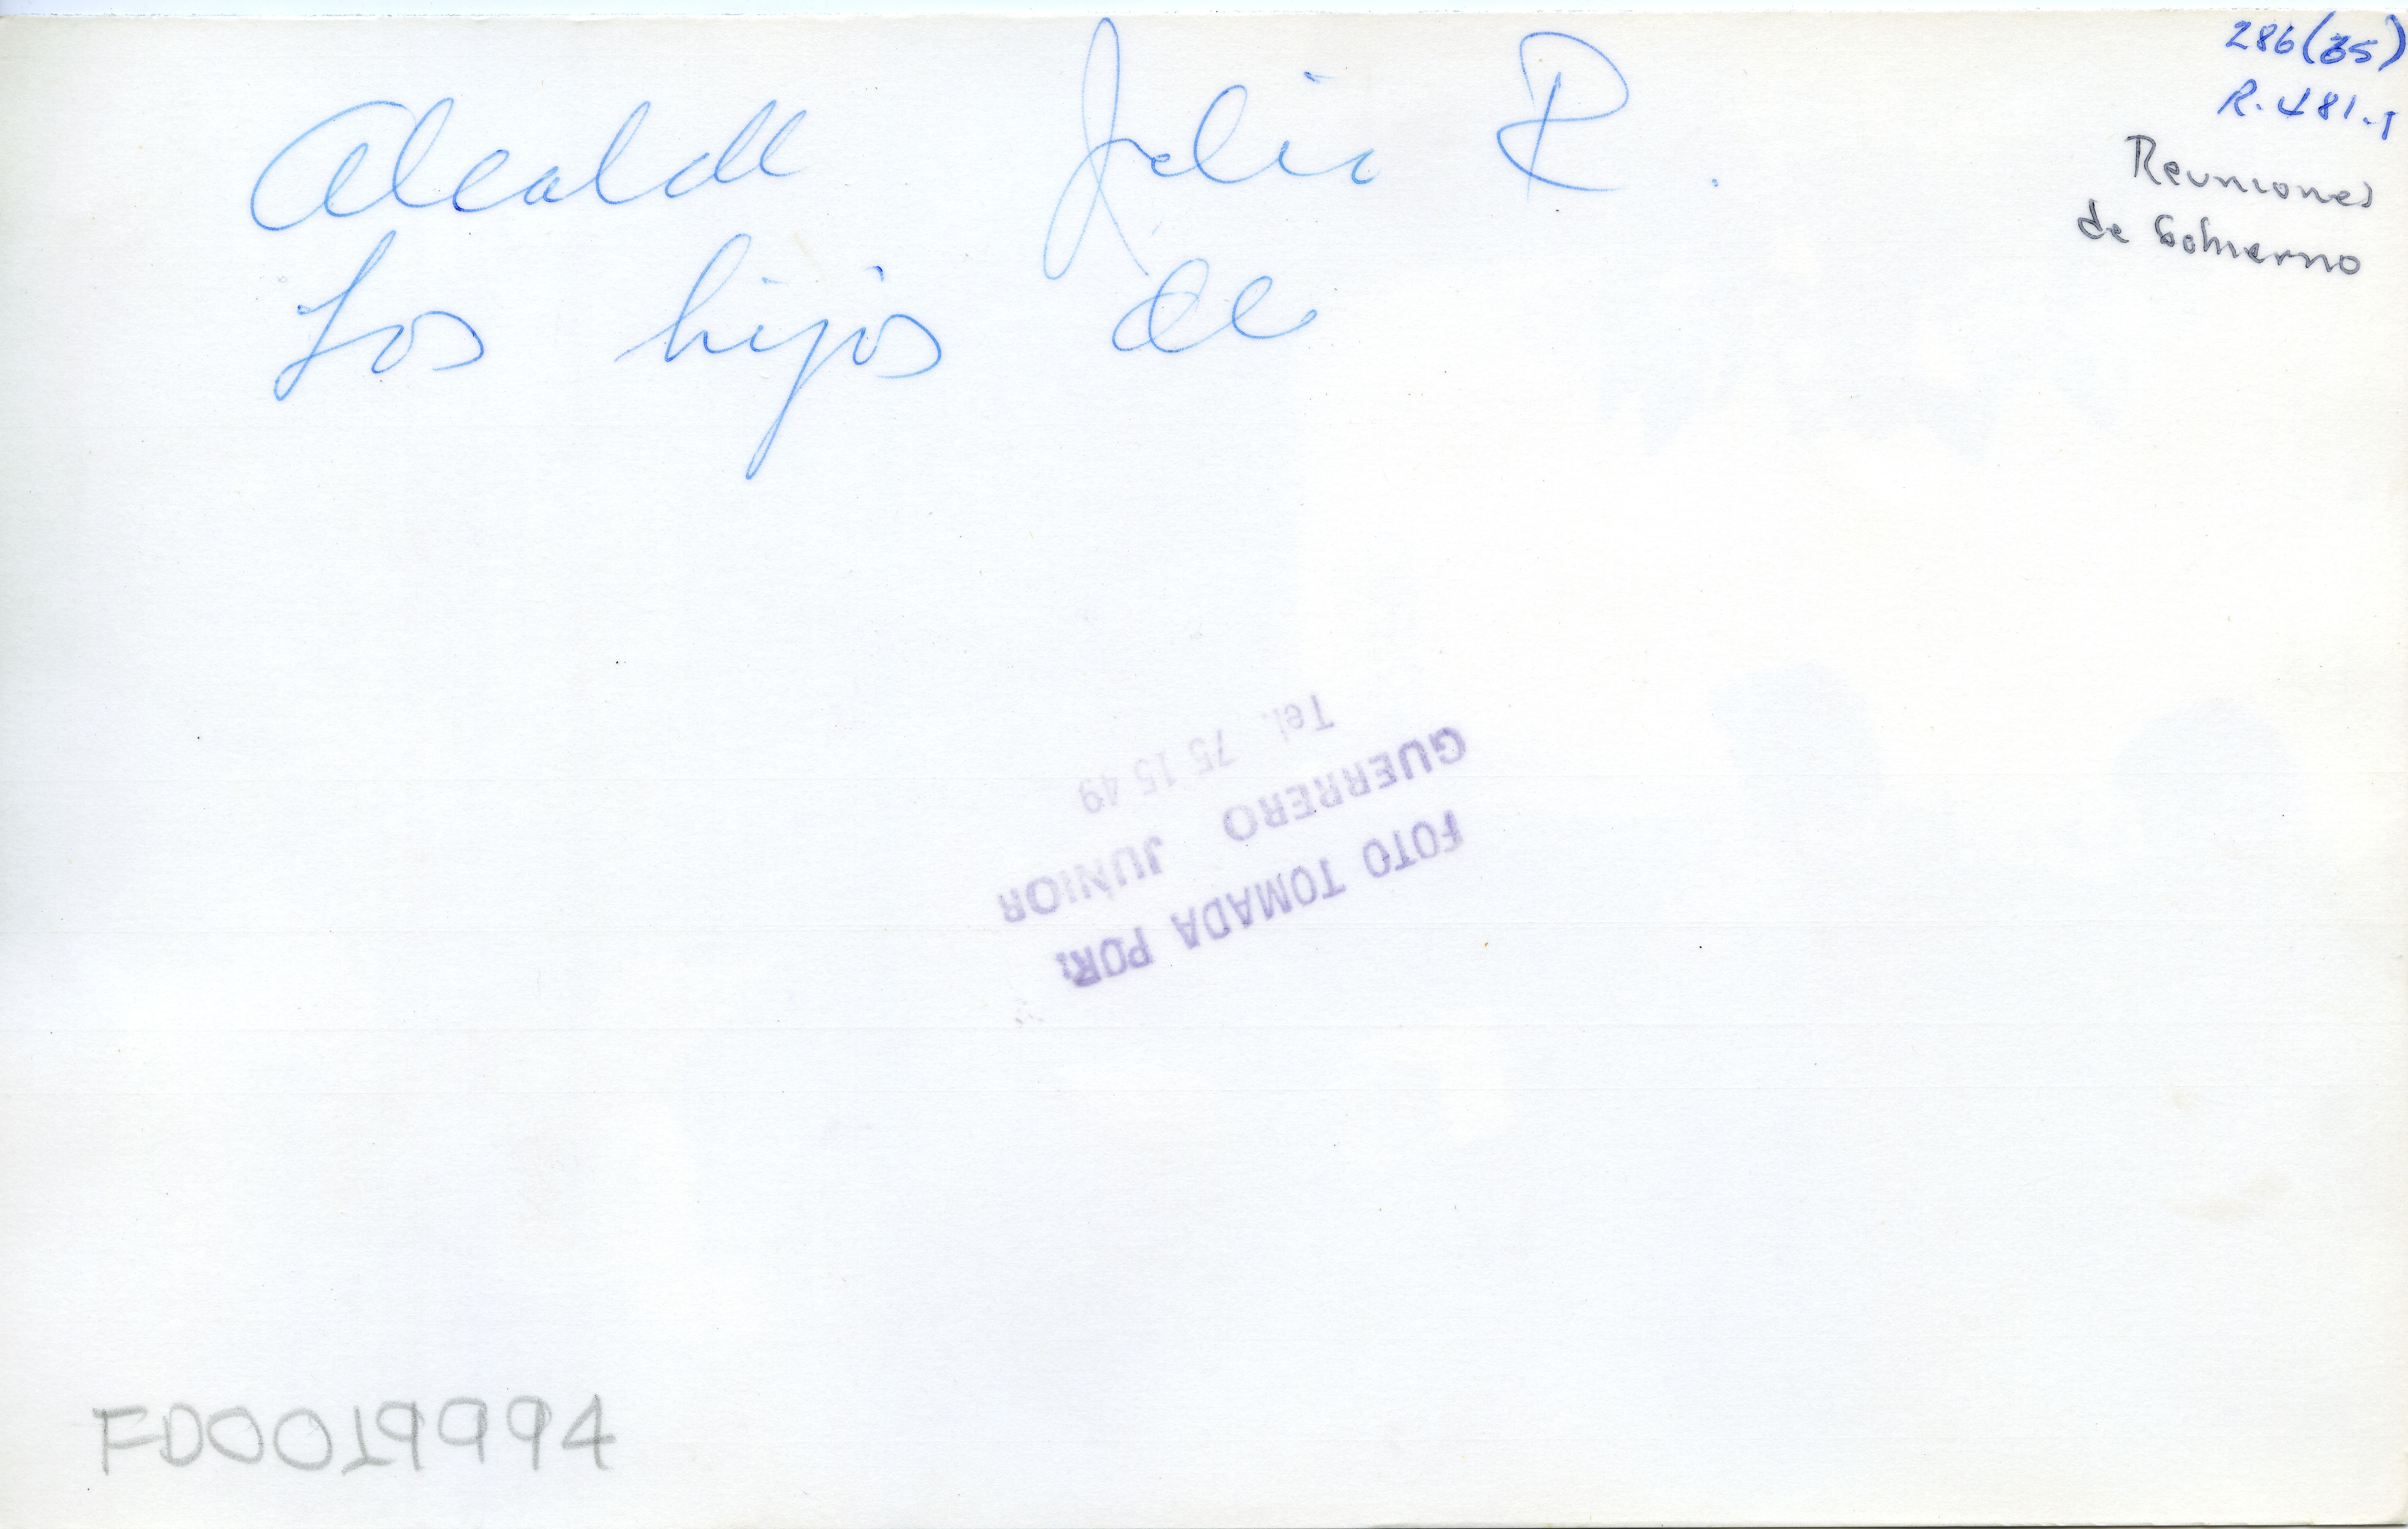 286(35)
R.481.1
Reuniones
de Gobierno
Alcalde Julio R.
Los hijos de
FOTO TOMADA POR:
GUERRERO JUNIOR
Tel. 75 15 49
FD0019994